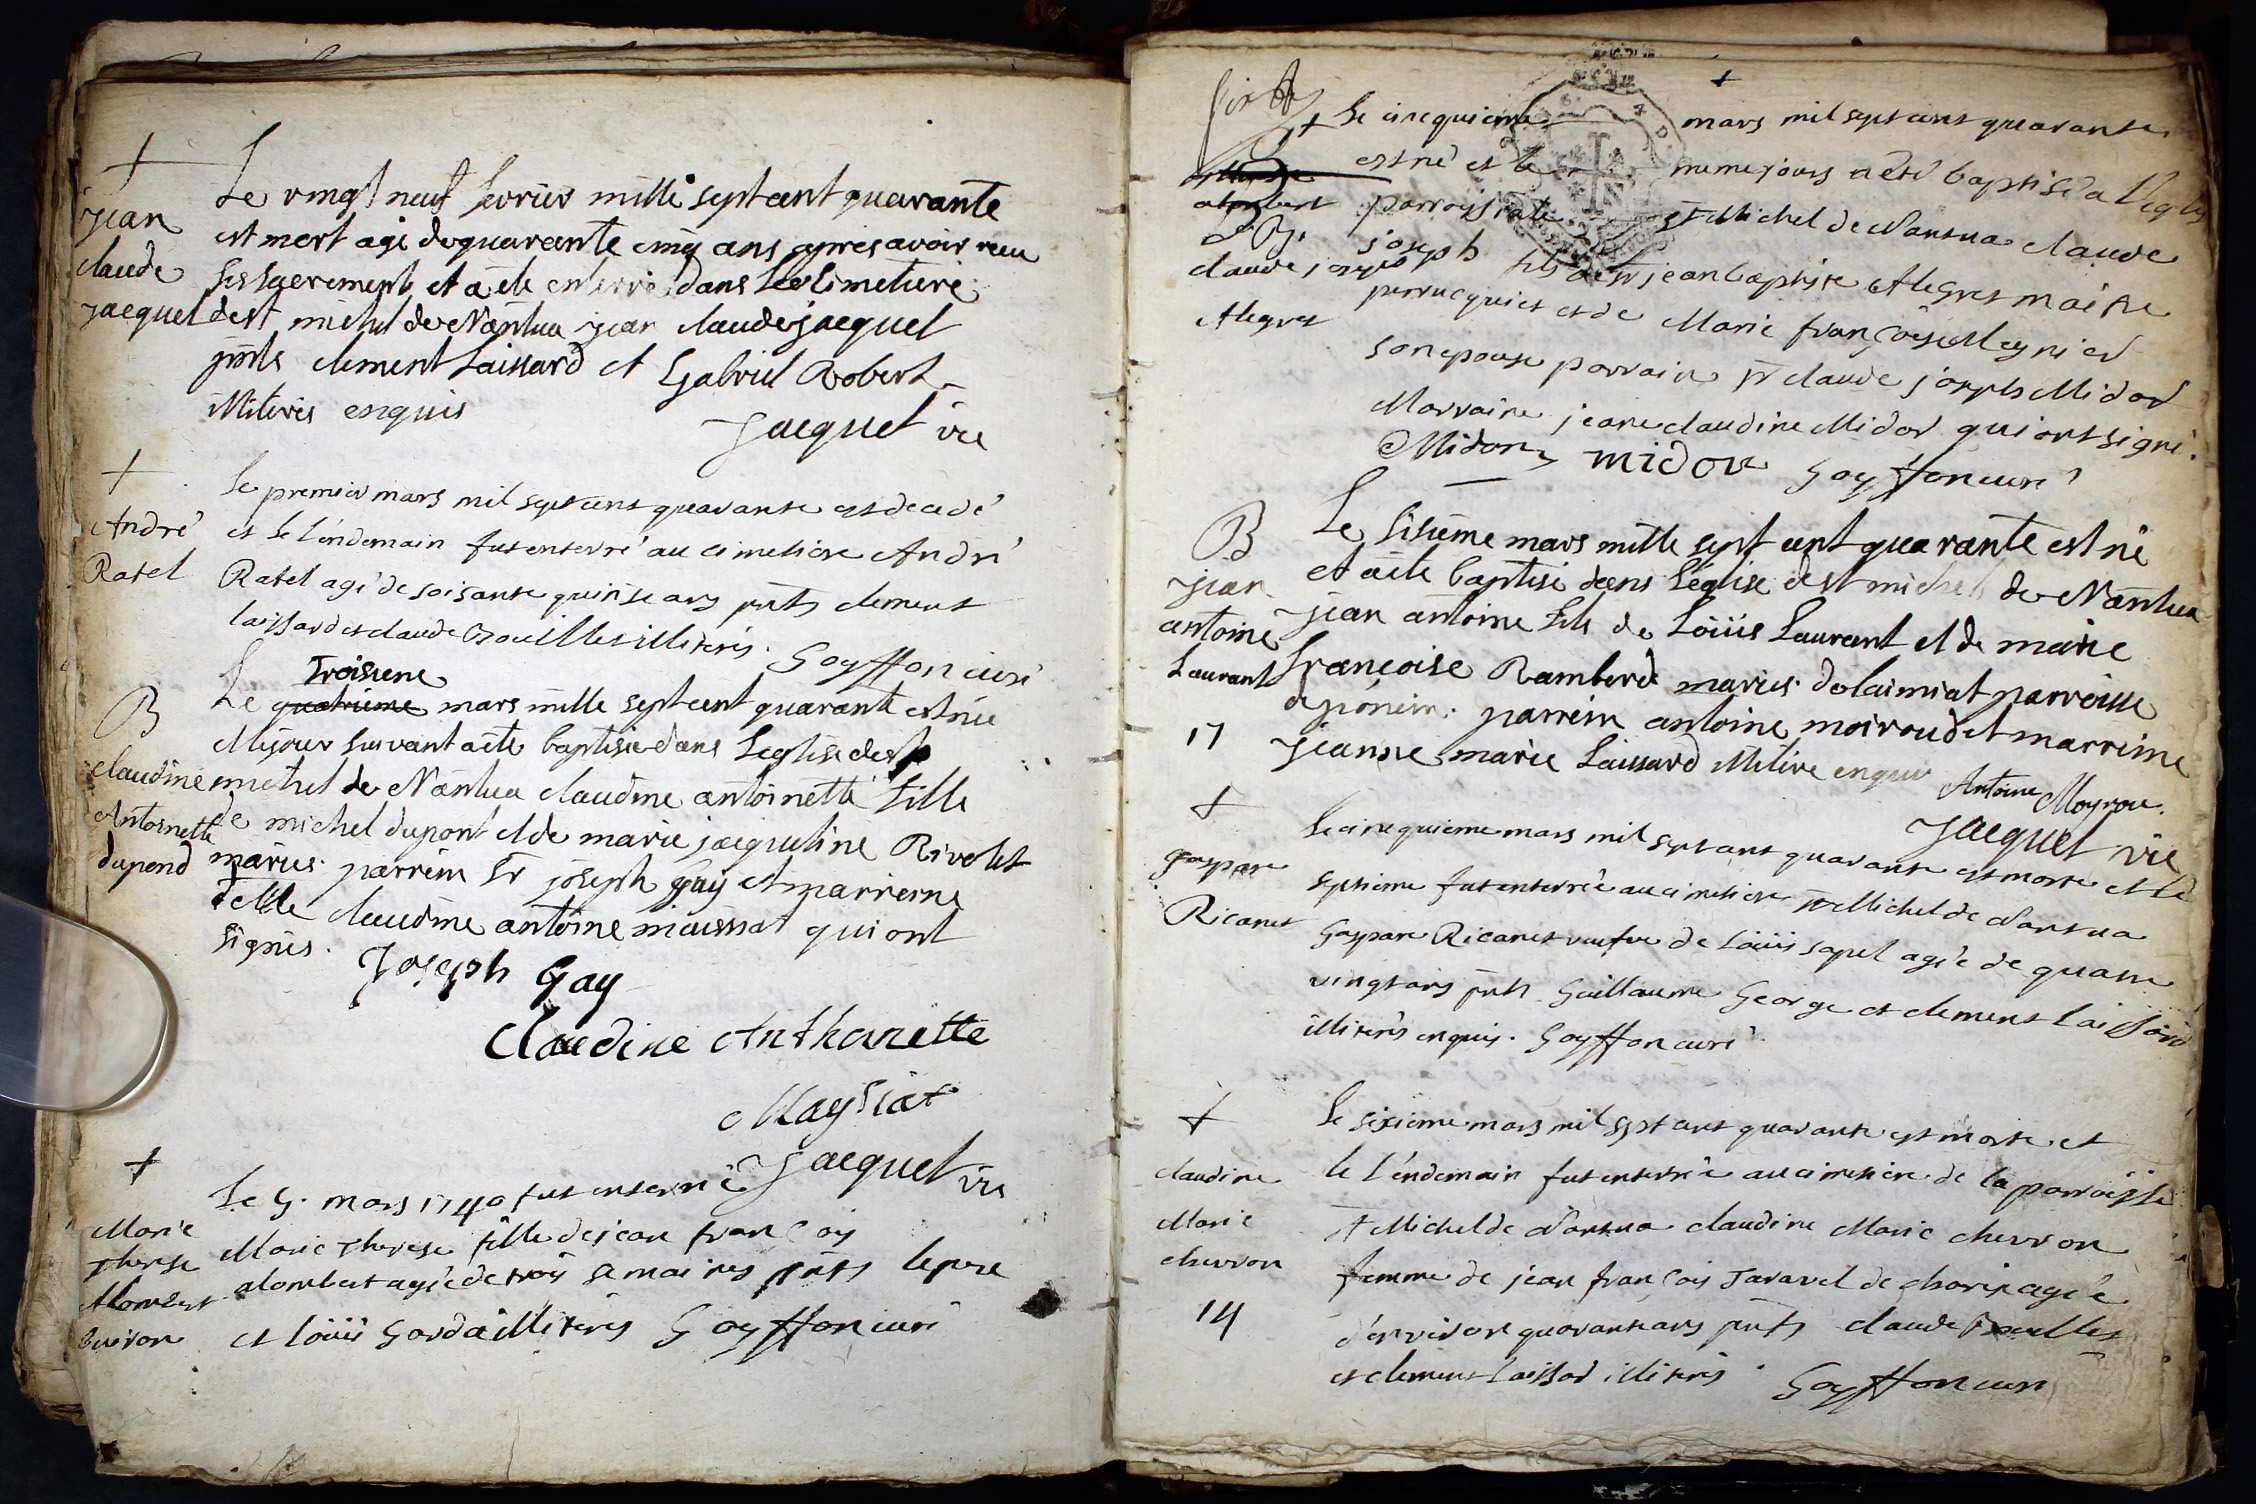 +
jean
claude
jacquet
Le vingt neuf fevrier mille sept cent quarante
est mort agé de quarante cinq ans apres avoir reçu
ses sacrements et a été enterré dans Le Cimetiere
de st michel de Nantua jean claude jacquet
pnts clement Laissard et Gabriel Robert
illiteres enquis
Jacquet vic
+
André
Ratel
Le premier mars mil sept cent quarante est decedé
et le l'endemain fut enterré au cimetiere André
Ratel agé de soisante quinse ans pnts clement
laissard et claude illiterés. Goyffon curé
B
claudine
Antoinette
dupond
troisieme
Le quatrieme mars mille sept cent quarante est née
et le jour survant a été baptisée dans L'eglise de st
michel de Nantua claudine antoinette fille
de michel dupont et de marie jacqueline Rivolet
mariés. parrein Sr joseph gay et marreine
delle claudine antoine maissiat qui ont
signés.
Joseph Gay
Claudine Anthonette
Maysiat
Jacquet vic
+
Marie
therese
Alombert
Le 5. mars 1740 fut enterrée
Marie Therese fille de jean françois
alombert agée de trois semaines pnts le pere
et loüis Gorda illiterés Goyffon curé
+
+ Le cinequieme mars mil sept cent quarante
est né et le meme jours a été baptisé a l'eglise
parroissiale st Michel de Nantua claude
joseph fils de sr jean baptiste Alegret maitre
perruequier et de Marie françoise Meynier
son epouse parrain sr claude joseph Midor
Marraine jeane claudine Midor qui ont signé.
Midor midor Goyffon curé
alombert
B.
claude joseph
Alegret
B
jean
antoine
Laurant
17
Le sisieme mars mille sept cent quarante est né
et a été baptisé dans L'eglise de st michel de Nantua
jean antoine fils de Loüis Laurant et de marie
françoise Ramberd mariés parroisse
parrein antoine moiroud et marreine
jeanne marie Laissard illitere enquis Antoine Moyrou.
Jacquet vic
+
gaspare
Ricanet
Le cinequieme mars mil sept cent quarante est morte et le
septieme fut enterrée au cimetiere st Michel de Nantua
Gaspare Ricanet veufve de Loüis sapel agée de quatre
vingt ans pnts Guillaume George et clement laissard
illiterés enquis. Goyffon curé
+
claudine
Marie
chevron
14
Le sixieme mars mil sept cent quarante est morte et
le l'endemain fut enterrée au cimetiere de la parroisse
st Michel de Nantua claudine Marie chevron
femme de jean françois Taravel de charix agée
d'environ quarante ans pnts claude
et clement laissard illiterés. Goyffon curé